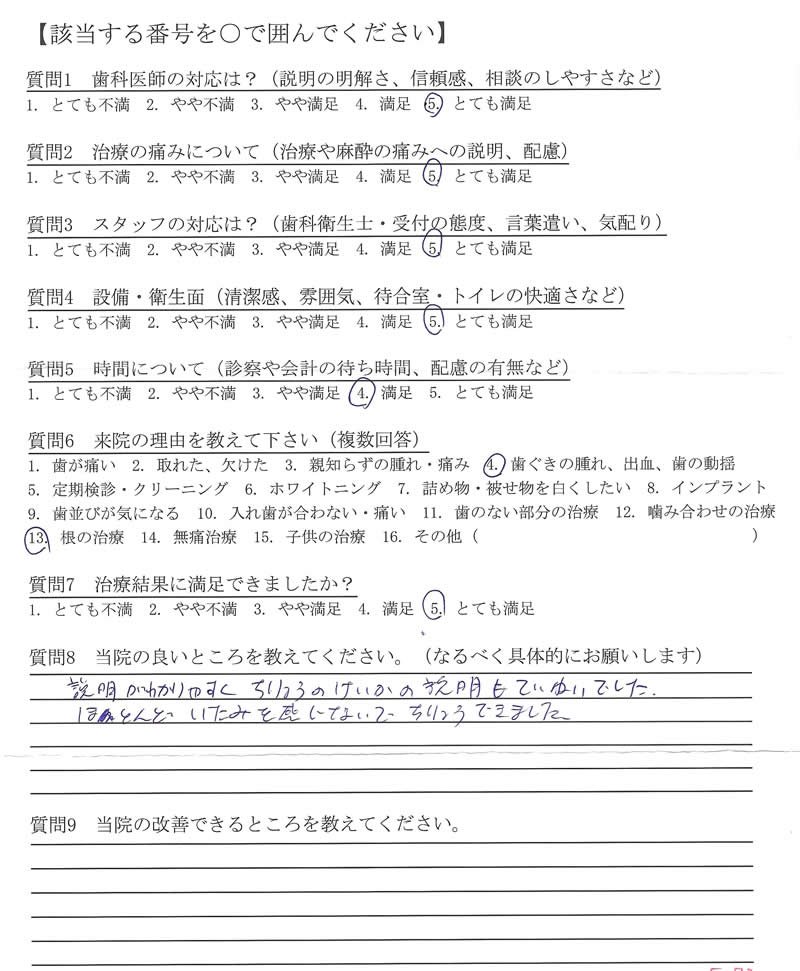 【該当する番号を〇で囲んでください】
質問1 歯科医師の対応は？（説明の明解さ、信頼感、相談のしやすさなど）
1. とても不満 2. やや不満 3. やや満足 4. 満足 5. とても満足
質問2 治療の痛みについて（治療や麻酔の痛みへの説明、配慮）
1. とても不満 2. やや不満 3. やや満足 4. 満足 5. とても満足
質問3 スタッフの対応は？（歯科衛生士・受付の態度、言葉遣い、気配り）
1. とても不満 2. やや不満 3. やや満足 4. 満足 5. とても満足
質問4 設備・衛生面（清潔感、雰囲気、待合室・トイレの快適さなど）
1. とても不満 2. やや不満 3. やや満足 4. 満足 5. とても満足
質問5 時間について（診察や会計の待ち時間、配慮の有無など）
1. とても不満 2. やや不満 3. やや満足 4. 満足 5. とても満足
質問6 来院の理由を教えて下さい（複数回答）
1. 歯が痛い 2. 取れた、欠けた 3. 親知らずの腫れ・痛み 4. 歯ぐきの腫れ、出血、歯の動揺
5. 定期検診・クリーニング 6. ホワイトニング 7. 詰め物・被せ物を白くしたい 8. インプラント
9. 歯並びが気になる 10. 入れ歯が合わない・痛い 11. 歯のない部分の治療 12. 噛み合わせの治療
13. 根の治療 14. 無痛治療 15. 子供の治療 16. その他（ ）
質問7 治療結果に満足できましたか？
1. とても不満 2. やや不満 3. やや満足 4. 満足 5. とても満足
質問8 当院の良いところを教えてください。（なるべく具体的にお願いします）
説明がわかりやすく ちりょうのけいかの説明もていねいでした.
ほとんど いたみを感じないで ちりょうできました
質問9 当院の改善できるところを教えてください。